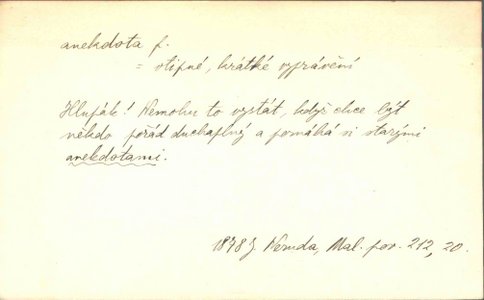 anekdota f.
= vtipné, krátké vyprávění
Hlupák! Nemohu to vystát, když chce být
někdo pořád duchaplný a pomáhá si starými
anekdotami.
1878 J. Neruda, Mal. pov. 212, 20.